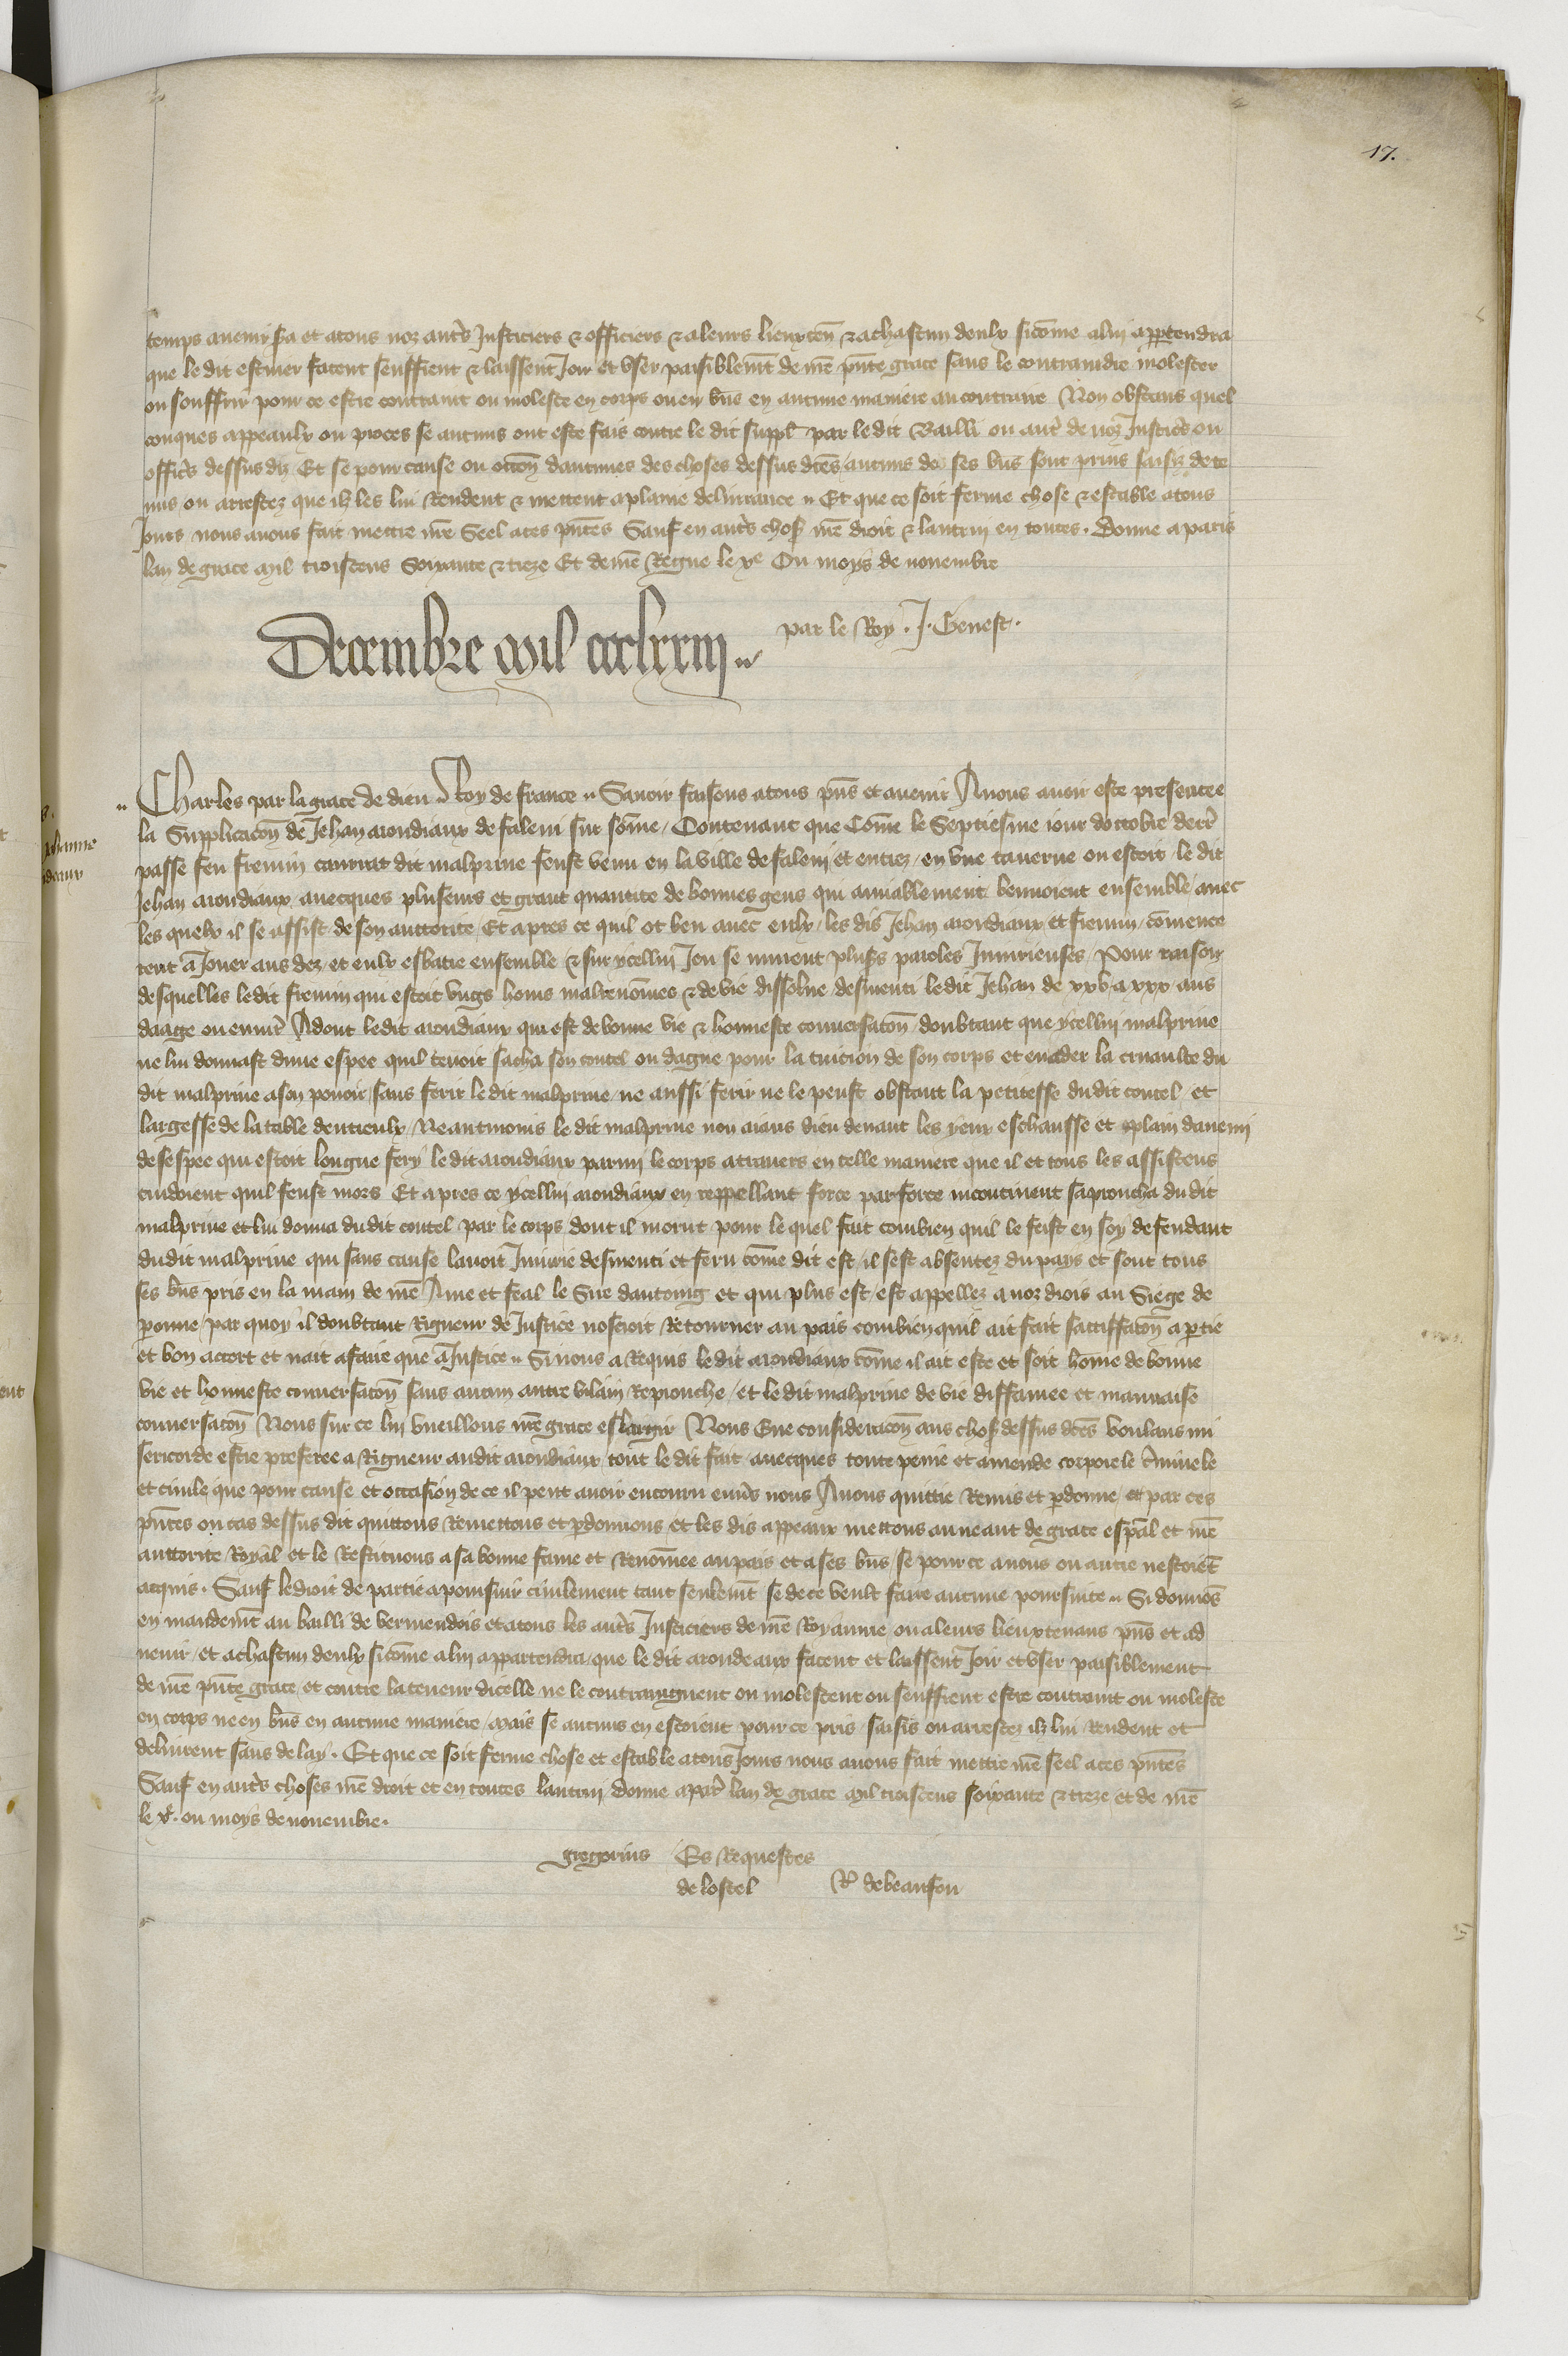 17.
temps avenir sa et atous noz autrs Justiciers & officiers & aleurs lieuxten & achascun deulx sicome alui appartendra
que le dit estuier facent seuffrent & laissent Joir et user paisiblemt de nre pnte grace sans le contraindre molester
ou souffrir pour ce estre contraint ou moleste en corps ou en bns en aucune maniere au contraire Non obstans quel
conques appeaulx ou proces se aucuns ont este fais contre le dit suppl par le dit Bailli ou autr de noz Justicrs ou
officrs dessus diz Et se pour cause ou occon daucunes des choses dessus dces aucuns de ses bns sont prins saisiz dete
nus ou arrestez que ilz les lui Rendent & mettent aplaine delivrance Et que ce soit ferme chose & estable atous
Jours nous avons fait mettre nre Seel aces pntes Sauf en autrs chos nre droit & lautrui en toutes . Donne a paris
lan de grace mil troiscens Soixante & treze Et de nre Regne le xe Ou moys de novembre
par le Roy . J. Genest .
Decembre mil ccclxxiij
Charles par la grace de dieu Roy de france Savoir faisons atous pns et avenir Anous avoir este presentee
la Supplicacon de Jehan mondiaux de faleui sur some / Contenant que Come le Septiesme iour doctobre derr
passe feu fremin caurrat dit malprive feust venu en la ville de faleui et entrez / en une taverne ou estoit le dit
Jehan mondiaux avecques pluseurs et grant quantite de bonnes gens qui amiablement bevoient ensemble avec
les quelx il se assist de son auctorite / Et apres ce quil ot beu avec eulx / les dis Jehan mondiaux et fremin comence
rent a Jouer aus dez / et eulx esbatre ensemble & sur ycellui Jeu se murent plusrs paroles Iniurieuses / Pour raison
desquelles ledit fremin qui estoit ungs homs malrenomes & de vie dissolue desmenti ledit Jehan de xxv a xxx ans
daage ou envir Adont ledit mondiaux qui est de bonne vie & honneste conversacon / doubtant que ycellui malprive
ne lui donnast dune espee quil tenoit sacha son coutel ou dague pour la tuicion de son corps et evader la cruaulte du
dit malprive ason povoir / sans ferir le dit malprive / ne aussi ferir ne le peust obstant la petitesse dudit coutel et
largesse de la table dentreulx / Neantmoins le dit malprive non aians dieu devant les yeux eschausse et plain danemi
de sespee qui estoit longue fery le dit mondiaux parmi le corps atravers en telle maniere que il et tous les assistens
cuidoient quil feust mors Et apres ce ycellui mondiaux en reppellant force par force incontinent saproucha du dit
malprive et lui donna dudit coutel par le corps dont il morut pour le quel fait combien quil le feist en soy defendant
dudit malprive qui sans cause lavoit Iniurie desmenti et feru come dit est / il sest absentez du pays et sont tous
ses bns pris en la main de nre Ame et feal le Sire dantoing et qui plus est / est appellez a noz drois au Siege de
peronne / par quoy il doubtant Rigueur de Justice noseroit Retourner au pais combien quil ait fait sattiffacon apartie
et bon accort et nait afaire que a Justice Si nous a Requis le dit mondiaux come il ait este et soit home de bonne
vie et honneste conversacon sans aucun autre vilain Reprouche / et le dit malprive de vie diffamee et mauvaise
conversacon Nous sur ce lui vueillons nre grace eslargir Nous Eue consideracon aus chos dessus dces voulans mi
sericorde estre preferee a Rigueur audit mondiaux tout le dit fait avecques toute peine et amende corporele criminele
et civile que pour cause et occasion de ce il peut avoir encouru envrs nous Avons quittie Remis et pardonne / et par ces
pntes ou cas dessus dit quittons Remettons et pardonnons et les dis appeaux mettons au neant de grace espal et nre
auctorite Royal et le Restituons a sa bonne fame et Renomee au pais et a ses bns se pour ce anous ou autre nestoiet
acquis . Sauf le droit de partie a poursuir civilement tant seulemt se de ce veult faire aucune poursuite Si donnos
en mandemt au bailli de vermendois et atous les autrs Justiciers de nre Royaume ou aleurs lieuxtenans pns et ad
venir / et achascun deulx sicome alui appartendra / que le dit mondeaux facent et laissent Joir et user paisiblement
de nre pnte grace et contre la teneur dicelle ne le contraingnent ou molestent ou seuffrent estre contraint ou moleste
en corps ne en bns en aucune maniere / mais se aucuns en estoient pour ce pris saisis ou arrestez ilz lui Rendent et
delivrent sans delay . Et que ce soit ferme chose et estable atous Jours nous avons fait mettre nre seel aces pntes
Sauf en autrs choses nre droit et en toutes lautrui donne a par lan de grace mil troiscens soixante & treze et de nre
le xe . ou moys de novembre .
gregorius Es Requestes
de lostel Ro de beaufou